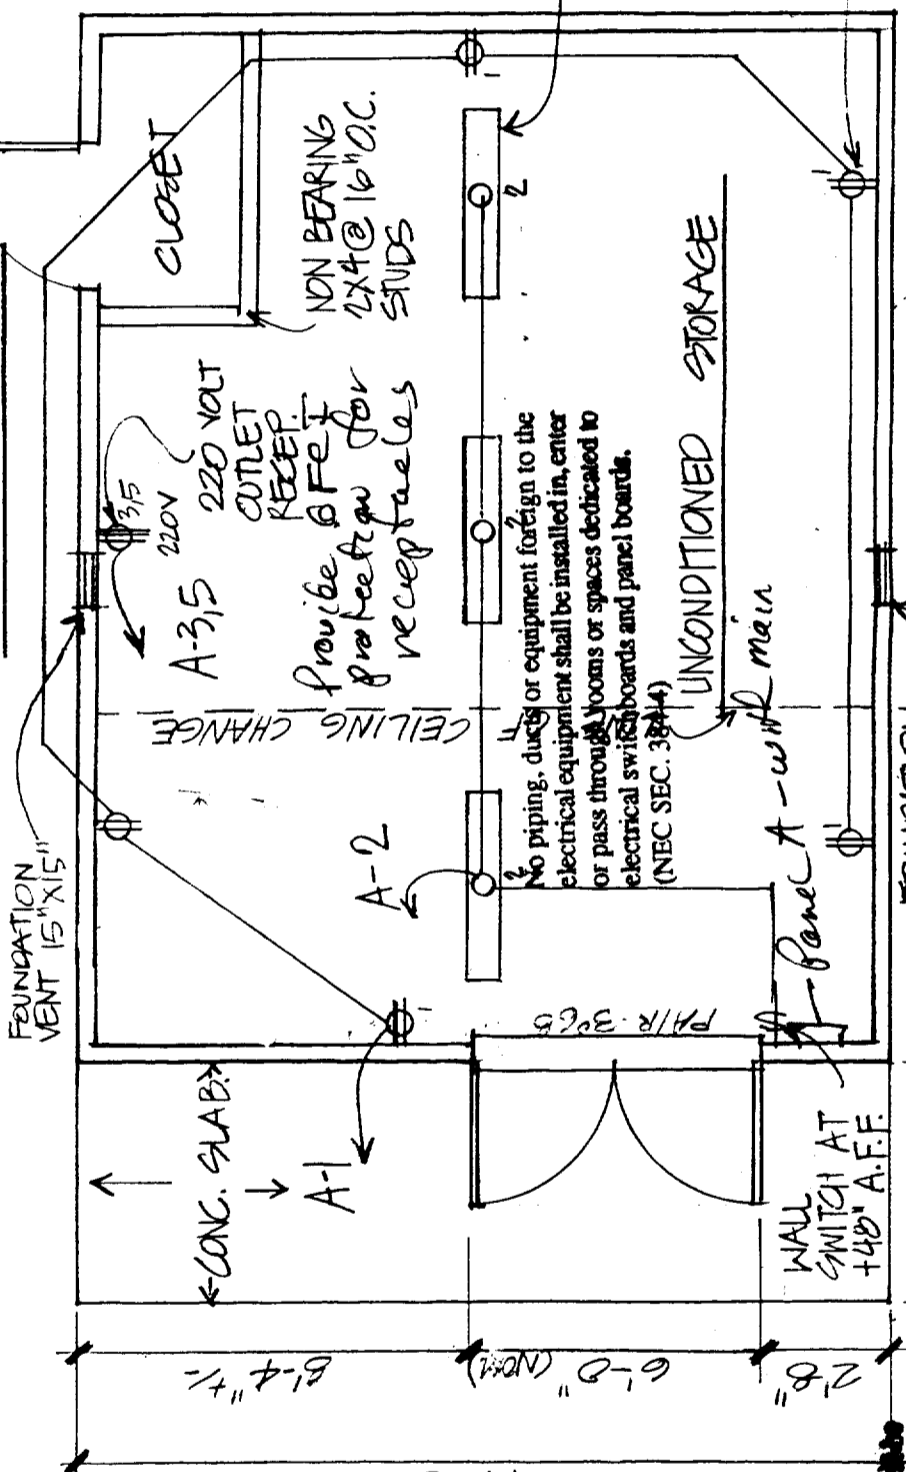 FOUNDATION
VENT 15"X15"
CLOSET
NON BEARING
2X4 @ 16" O.C.
STUDS
3,5
220V
220 VOLT
OUTLET
RECEP.
A-3,5
Provide GFCI
protection for
receptacles
CEILING CHANGE
1
1
1
1
2
2
2
A-2
No piping, ducts or equipment foreign to the
electrical equipment shall be installed in, enter
or pass through rooms or spaces dedicated to
electrical switchboards and panel boards.
(NEC SEC. 384-4)
UNCONDITIONED STORAGE
Panel A - main
PAIR 3068
CONC. SLAB
A-1
WALL
SWITCH AT
+48" A.F.F.
8'-4" +/-
6'-0" (NOM)
2'-8"